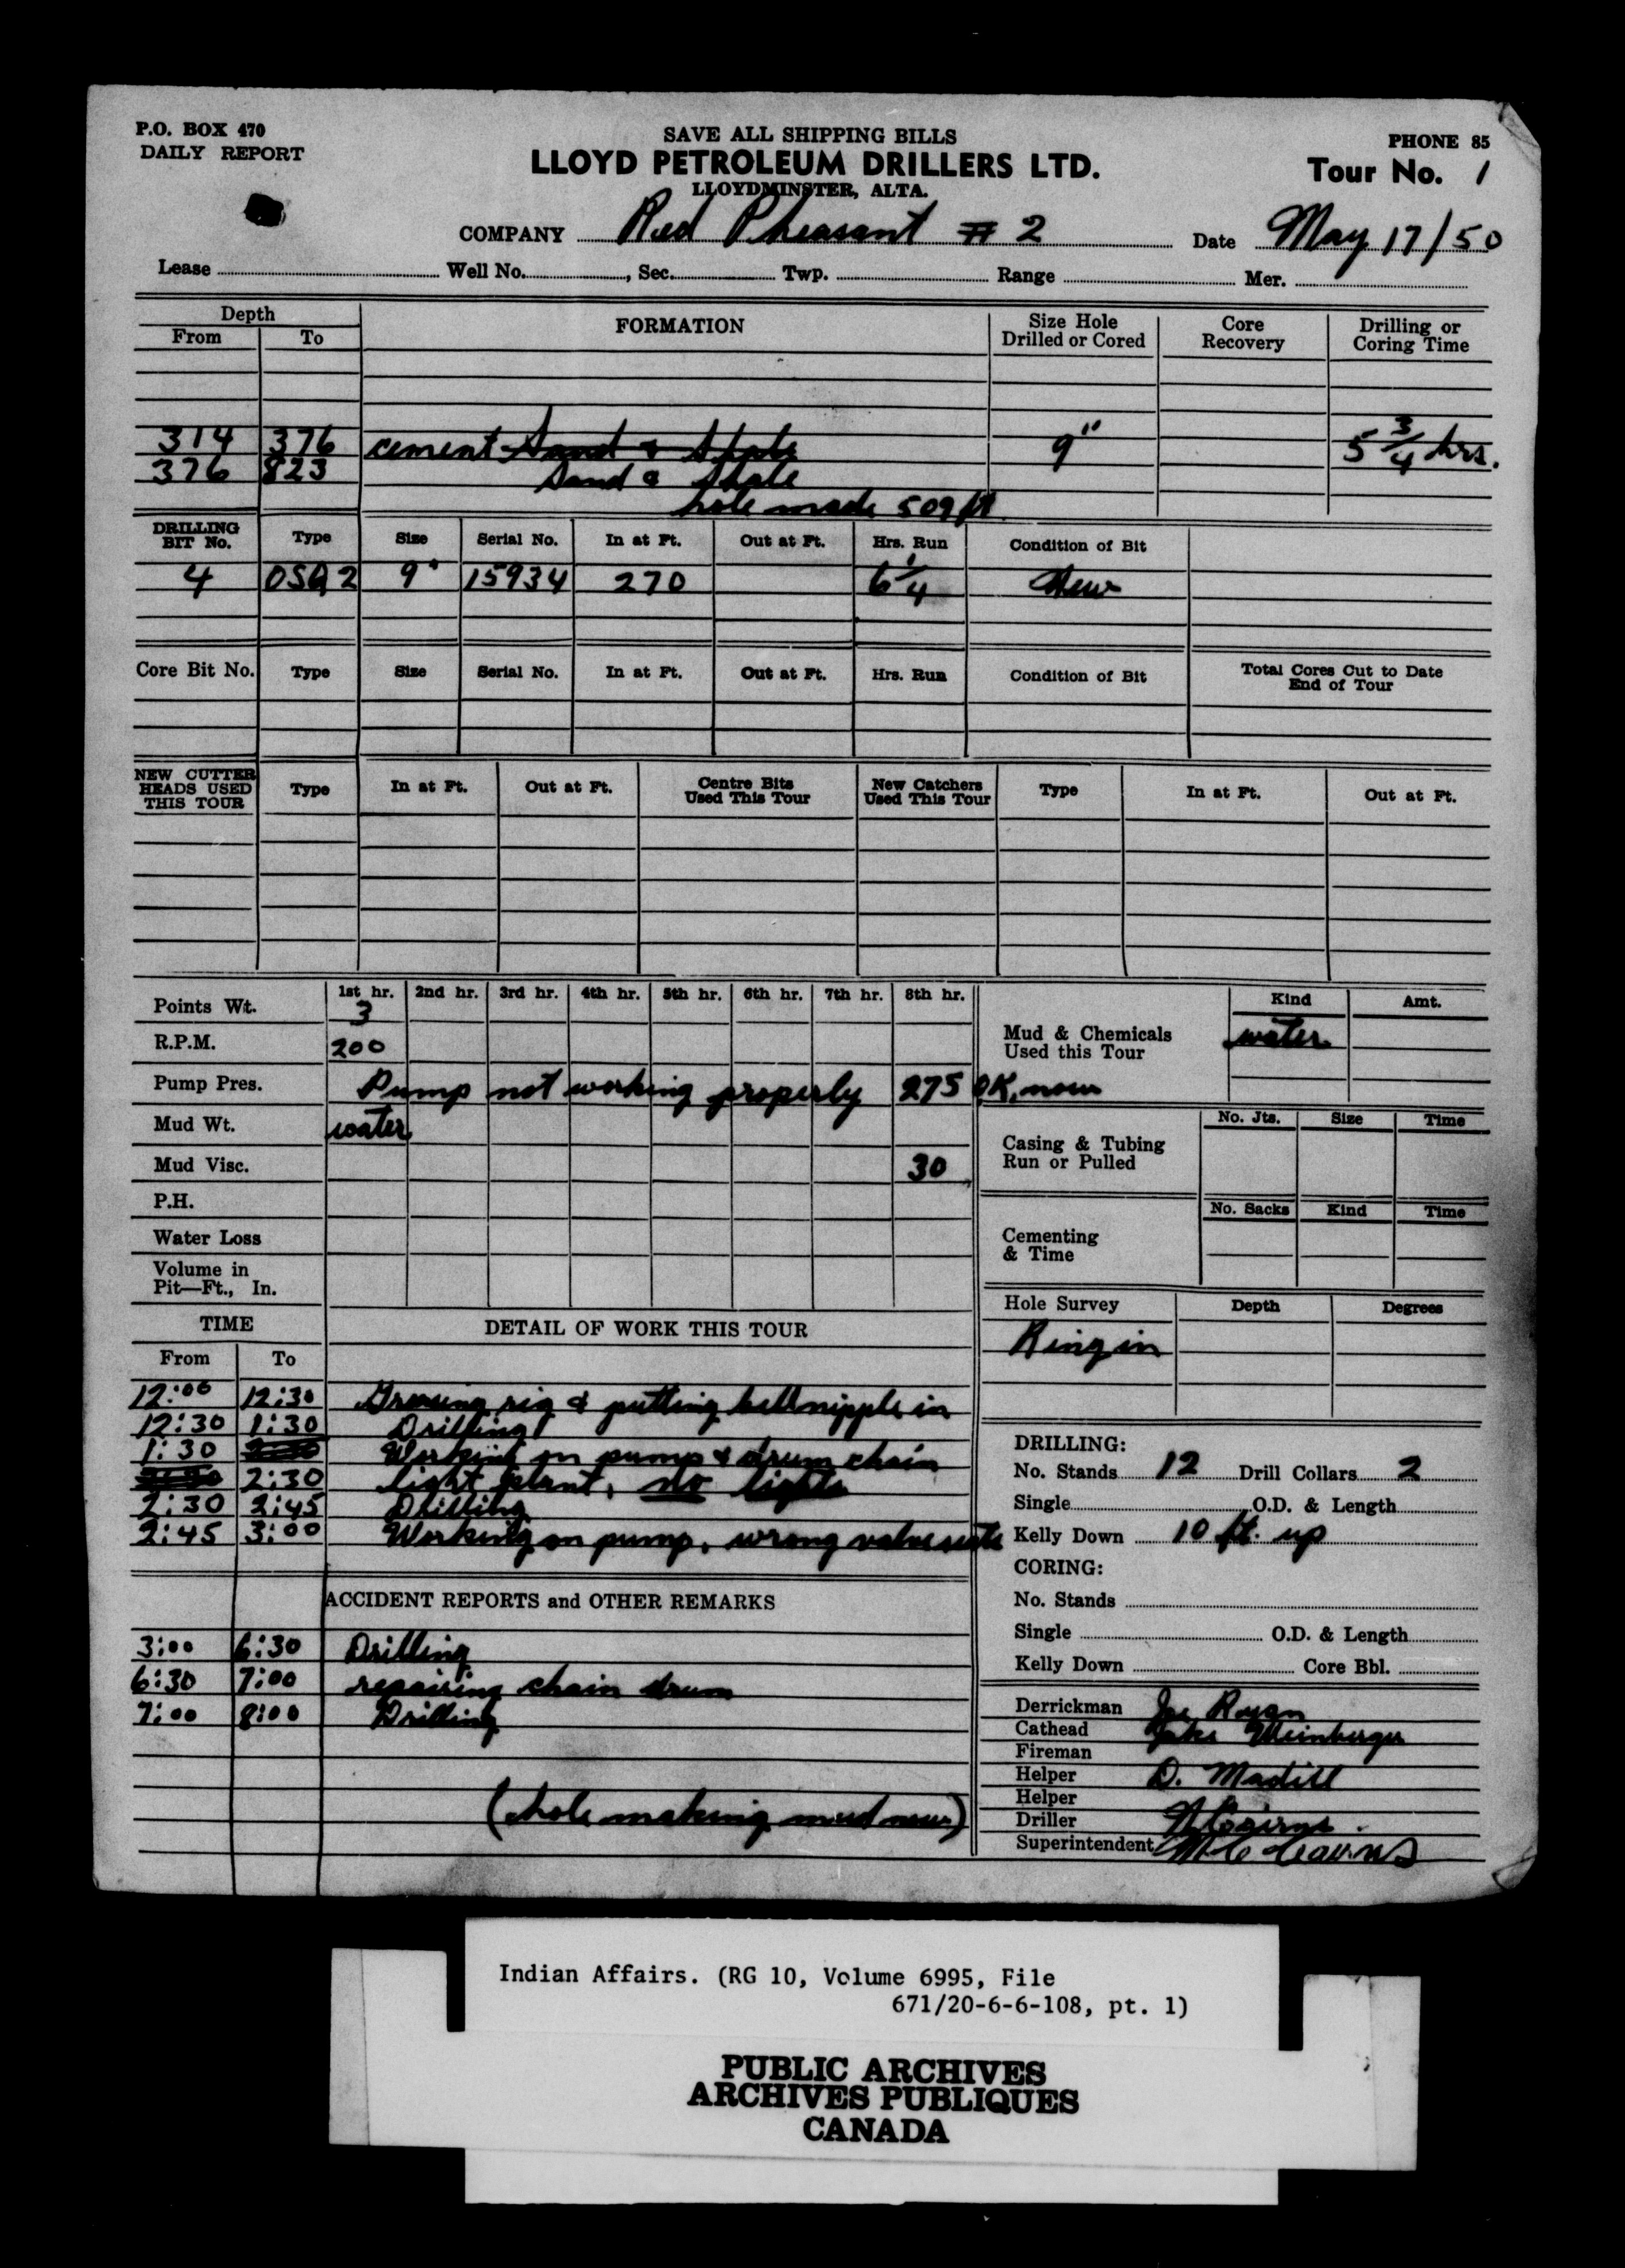 P.O. BOX 470
DAILY REPORT
SAVE ALL SHIPPING BILLS
LLOYD PETROLEUM DRILLERS LTD.
LLOYDMINSTER, ALTA.
PHONE 85
Tour No. 1
COMPANY Red Pheasant # 2 Date May 17/50
Lease Well No. , Sec. Twp. Range Mer.
Depth
From To FORMATION Size Hole Drilled or Cored Core Recovery Drilling or Coring Time
314 376 cement Sand & Shale 9" 5 3/4 hrs.
376 823 Sand & Shale
hole made 509 ft
DRILLING BIT No. Type Size Serial No. In at Ft. Out at Ft. Hrs. Run Condition of Bit
4 OSQ2 9" 15934 270 6 1/4 New
Core Bit No. Type Size Serial No. In at Ft. Out at Ft. Hrs. Run Condition of Bit Total Cores Cut to Date End of Tour
NEW CUTTER HEADS USED THIS TOUR Type In at Ft. Out at Ft. Centre Bits Used This Tour New Catchers Used This Tour Type In at Ft. Out at Ft.
1st hr. 2nd hr. 3rd hr. 4th hr. 5th hr. 6th hr. 7th hr. 8th hr.
Points Wt. 3
R.P.M. 200
Pump Pres. Pump not working properly 275 O.K. now
Mud Wt. water
Mud Visc. 30
P.H.
Water Loss
Volume in Pit—Ft., In.
Kind Amt.
Mud & Chemicals Used this Tour water
No. Jts. Size Time
Casing & Tubing Run or Pulled
No. Sacks Kind Time
Cementing & Time
Hole Survey Depth Degrees
Ring in
TIME DETAIL OF WORK THIS TOUR
From To
12:00 12:30 Greasing rig & putting bellnipple in
12:30 1:30 Drilling
1:30 Working on pump & drum chain
2:30 light plant, no lights
2:30 2:45 Drilling
2:45 3:00 Working on pump, wrong valve seats
ACCIDENT REPORTS and OTHER REMARKS
3:00 6:30 Drilling
6:30 7:00 repairing chain drum
7:00 8:00 Drilling
(hole making mud now)
DRILLING:
No. Stands 12 Drill Collars 2
Single O.D. & Length
Kelly Down 10 ft. up
CORING:
No. Stands
Single O.D. & Length
Kelly Down Core Bbl.
Derrickman Joe Ryan
Cathead Jake Weinberger
Fireman
Helper D. Madill
Helper
Driller Cairns
Superintendent
Indian Affairs. (RG 10, Volume 6995, File
671/20-6-6-108, pt. 1)
PUBLIC ARCHIVES
ARCHIVES PUBLIQUES
CANADA